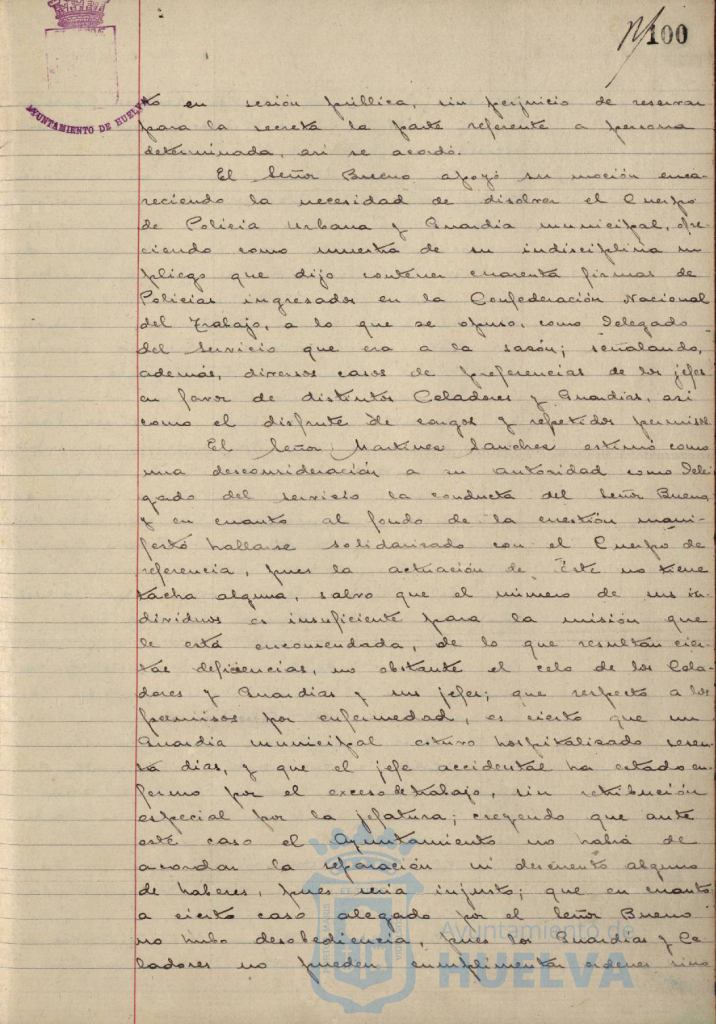 100
AYUNTAMIENTO DE HUELVA
to en sesión pública, sin perjuicio de reservar
para la secreta la parte referente a persona
determinada, asi se acordó.
El Señor Bueno apoyó su moción enca-
reciendo la necesidad de disolver el Cuerpo
de Policia Urbana y Guardia municipal, ofre-
ciendo como muestra de su indisciplina un
pliego que dijo contener cuarenta firmas de
Policias ingresados en la Confederación Nacional
del Trabajo, a lo que se opuso, como Delegado
del Servicio que era a la sasón; señalando,
además, diversos casos de preferencias de los jefes
en favor de distintos Celadores y Guardias, asi
como el disfrute de cargos y repetidos permisos.
El Señor Martinez Sanchez estimó como
una desconsideración a su autoridad como Dele-
gado del servicio la conducta del Señor Bueno
y en cuanto al fondo de la cuestión mani-
festó hallarse solidarizado con el Cuerpo de
referencia, pues la actuación de Este no tiene
tacha alguna, salvo que el número de sus in-
dividuos es insuficiente para la misión que
le está encomendada, de lo que resultan cier-
tas deficiencias, no obstante el celo de los Cela-
dores y Guardias y sus jefes; que respecto a los
permisos por enfermedad, es cierto que un
Guardia municipal estuvo hospitalizado sesen-
ta dias, y que el jefe accidental ha estado en-
fermo por el exceso de trabajo, sin retribución
especial por la jefatura; creyendo que ante
este caso el Ayuntamiento no habrá de
acordar la separación ni descuento alguno
de haberes, pues seria injusto; que en cuanto
a cierto caso alegado por el Señor Bueno
no hubo desobediencia, pues los Guardias y Ce-
ladores no pueden cumplimentar ordenes sino
Ayuntamiento de
HUELVA